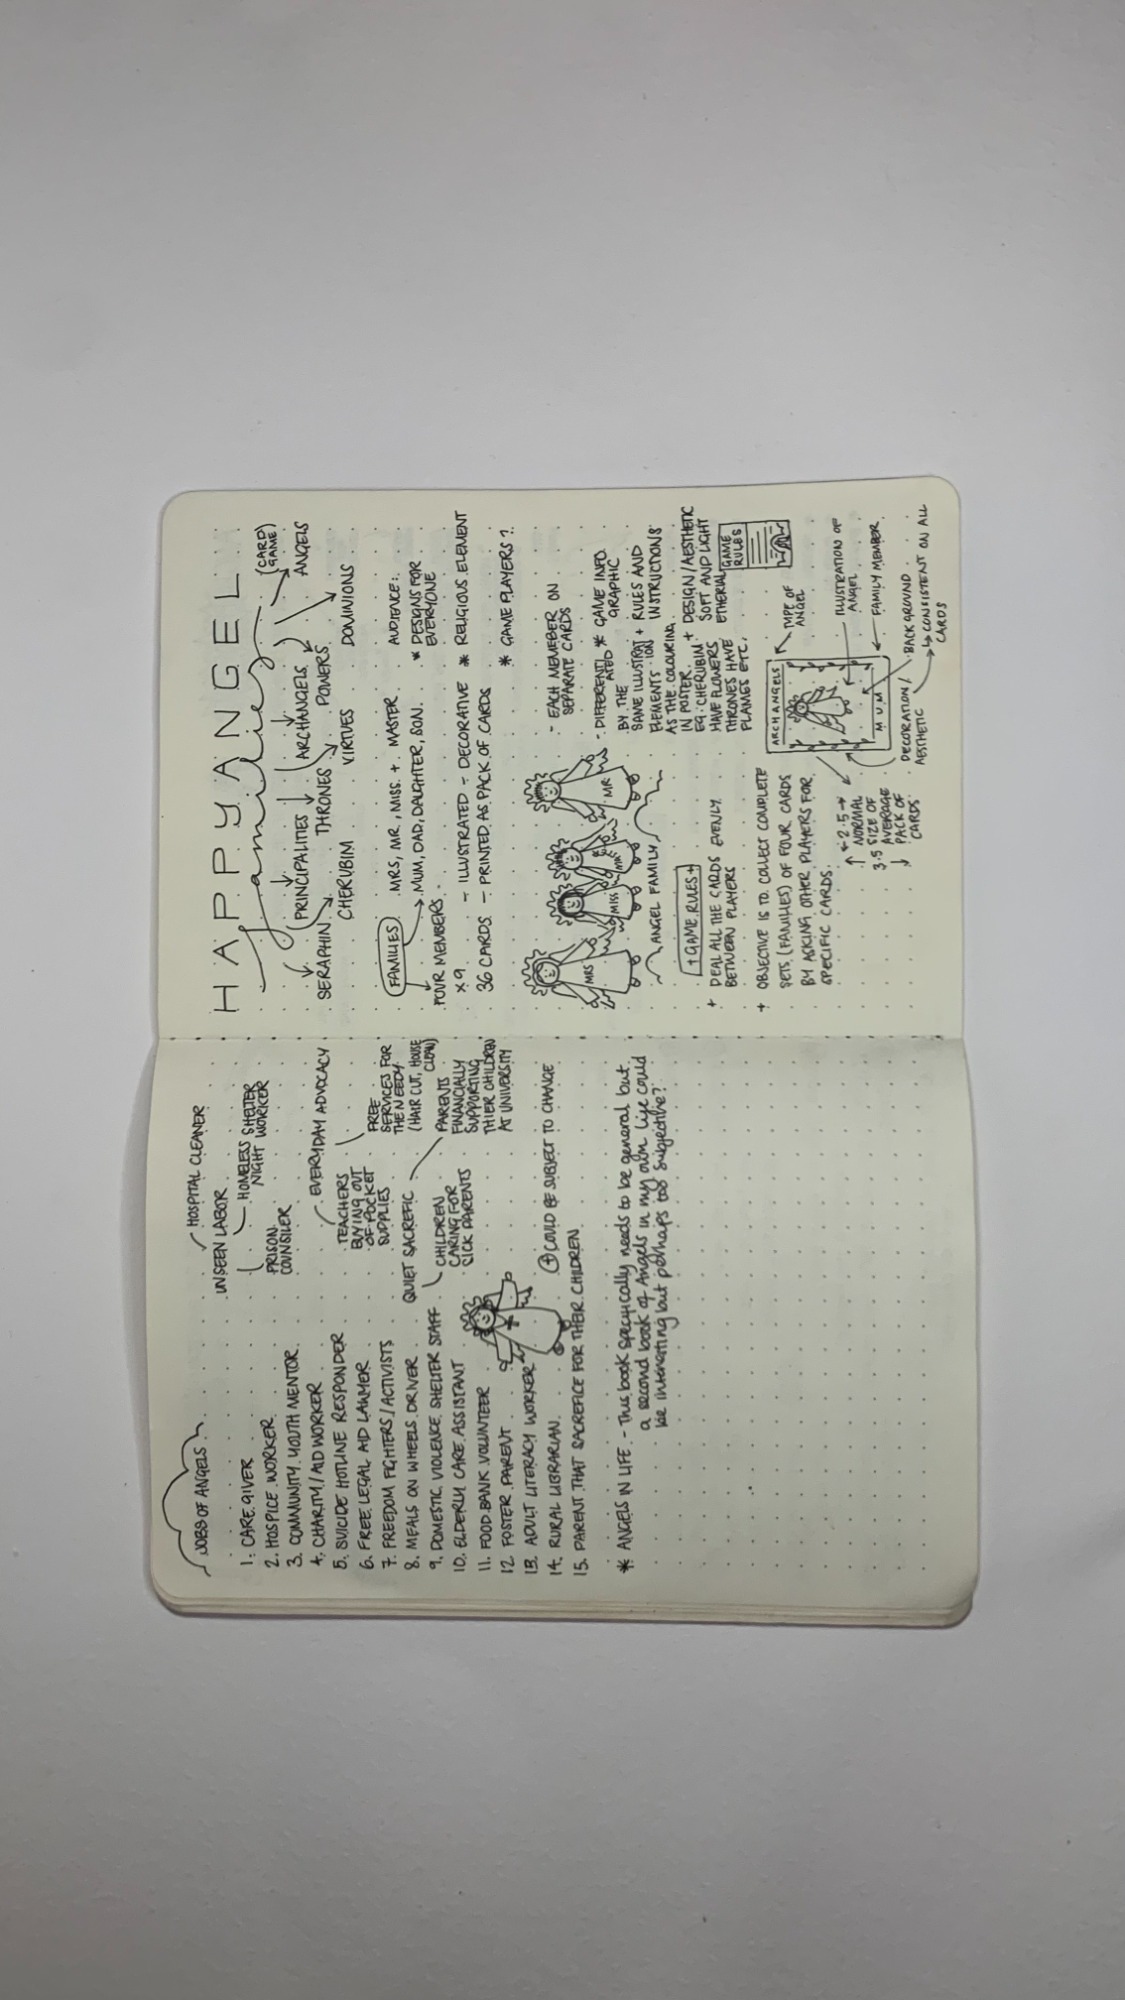 JOBS OF ANGELS
1. CARE GIVER
2. HOSPICE WORKER
3. COMMUNITY YOUTH MENTOR
4. CHARITY/AID WORKER
5. SUICIDE HOTLINE RESPONDER
6. FREE LEGAL AID LAWMER
7. FREEDOM FIGHTERS/ACTIVISTS
8. MEALS ON WHEELS DRIVER
9. DOMESTIC VIOLENCE SHELTER STAFF
10. ELDERLY CARE ASSISTANT
11. FOOD BANK VOLUNTEER
12 FOSTER PARENT
13. ADULT LITERACY WORKER
14. RURAL LIBRARIAN
15. PARENT THAT SACREFICE FOR THEIR CHILDREN
HOSPITAL CLEANER
UNSEEN LABOR
HOMELESS SHELTER
NIGHT WORKER
PRISON
COUNSILER
EVERYDAY ADVOCACY
TEACHERS
BUYING OUT
OF POCKET
SUPPLIES
FREE
SERVICES FOR
THE NEEDY
(HAIR CUT, HOUSE
CLEAN)
QUIET SACREFIC
CHILDREN
CARING FOR
SICK PARENTS
PARENTS
FINANCIALLY
SUPPORTING
THIER CHILDREN
AT UNIVERSITY
+ COULD BE SUBJECT TO CHANGE
* ANGELS IN LIFE - This book specifically needs to be general but
a second book of Angels in my own life could
be interesting but perhaps too subjective?
HAPPY ANGEL
families
(CARD
GAME)
PRINCIPALITIES
ARCHANGELS
ANGELS
SERAPHIN
THRONES
POWERS
CHERUBIM
VIRTUES
DOMINIONS
FAMILIES
MRS, MR, MISS + MASTER
MUM, DAD, DAUGHTER, SON.
FOUR MEMBERS
x 9
36 CARDS
- ILLUSTRATED - DECORATIVE
- PRINTED AS PACK OF CARDS
AUDIENCE:
* DESIGNS FOR
EVERYONE
* RELIGIOUS ELEMENT
* GAME PLAYERS?
MRS
MISS
MR
ANGEL FAMILY
- EACH MEMEBER ON
SEPARATE CARDS
- DIFFERENTI
ATED
BY THE
SAME ILLUSTRAT
ION
ELEMENTS
AS THE COLOURING
IN POSTER.
EG: CHERUBIM
HAVE FLOWERS
THRONES HAVE
FLAMES ETC.
* GAME INFO
GRAPHIC
+ RULES AND
INSTRUCTIONS
+ DESIGN/AESTHETIC
SOFT AND LIGHT
ETHERIAL
GAME
RULES
+ GAME RULES +
+ DEAL ALL THE CARDS EVENLY
BETWEEN PLAYERS
+ OBJECTIVE IS TO COLLECT COMPLETE
SETS (FAMILIES) OF FOUR CARDS
BY ASKING OTHER PLAYERS FOR
SPECIFIC CARDS.
ARCHANGELS
MUM
TYPE OF
ANGEL
ILLUSTRATION OF
ANGEL
FAMILY MEMBER
BACKGROUND
CONSISTENT ON ALL
CARDS
DECORATION/
AESTHETIC
2.5
3.5
NORMAL
SIZE OF
AVERAGE
PACK OF
CARDS